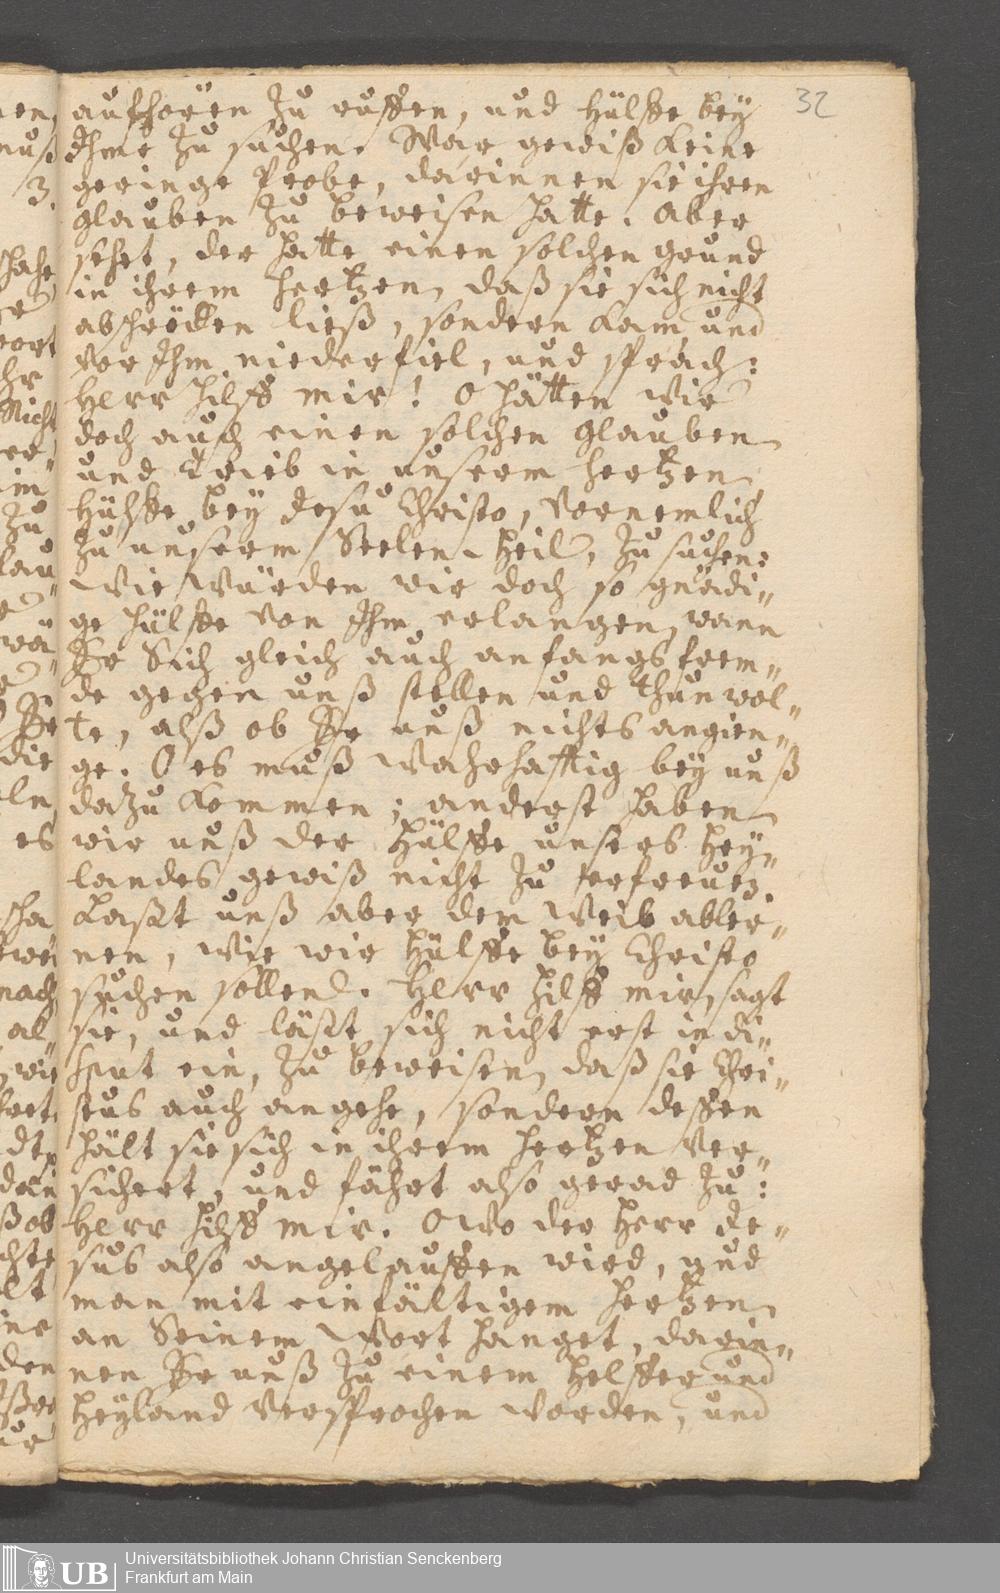 32
aufhören zu ruffen, und Hülffe bey
Ihme zu suchen. War gewiß keine
geringe Probe, darinnen sie ihren
glauben zu beweisen hatte. Aber
sehet, der hatte einen solchen grund
in ihrem Hertzen, daß sie sich nicht
abschröcken ließ, sondern kam und
vor Ihm niederfiel, und sprach:
Herr hilff mir! O hätten wir
doch auch einen solchen glauben
und Trieb in unserem Hertzen,
Hülffe bey Jesu Christo, vornemlich
zu unserem Seelen-Heil, zu suchen:
wie würden wir doch so gnädi-
ge hülffe von Ihm erlangen, wann
Er Sich gleich auch anfangs frem-
de gegen unß stellen und thun wol-
te, alß ob Er unß nichts angien-
ge. O es muß wahrhafftig bey unß
dazu kommen; anderst haben
wir unß der Hülffe unsers Hey-
landes gewiß nicht zu erfreuen.
Laßt unß aber dem Weib abler-
nen, wie wir Hülffe bey Christo
suchen sollen. Herr hilff mir, sagt
sie, und läßt sich nicht erst in di-
sput ein, zu beweisen, daß sie Chri-
stus auch angehe, sondern dessen
hält sie sich in ihrem Hertzen ver-
sichert, und fährt also gerad zu:
Herr hilff mir. O wo der Herr Je-
sus also angelauffen wird, und
man mit einfältigem Hertzen
an Seinem Wort hanget, darin-
nen Er unß zu einem Helffer und
Heyland versprochen worden, und
Universitätsbibliothek Johann Christian Senckenberg
Frankfurt am Main
UB